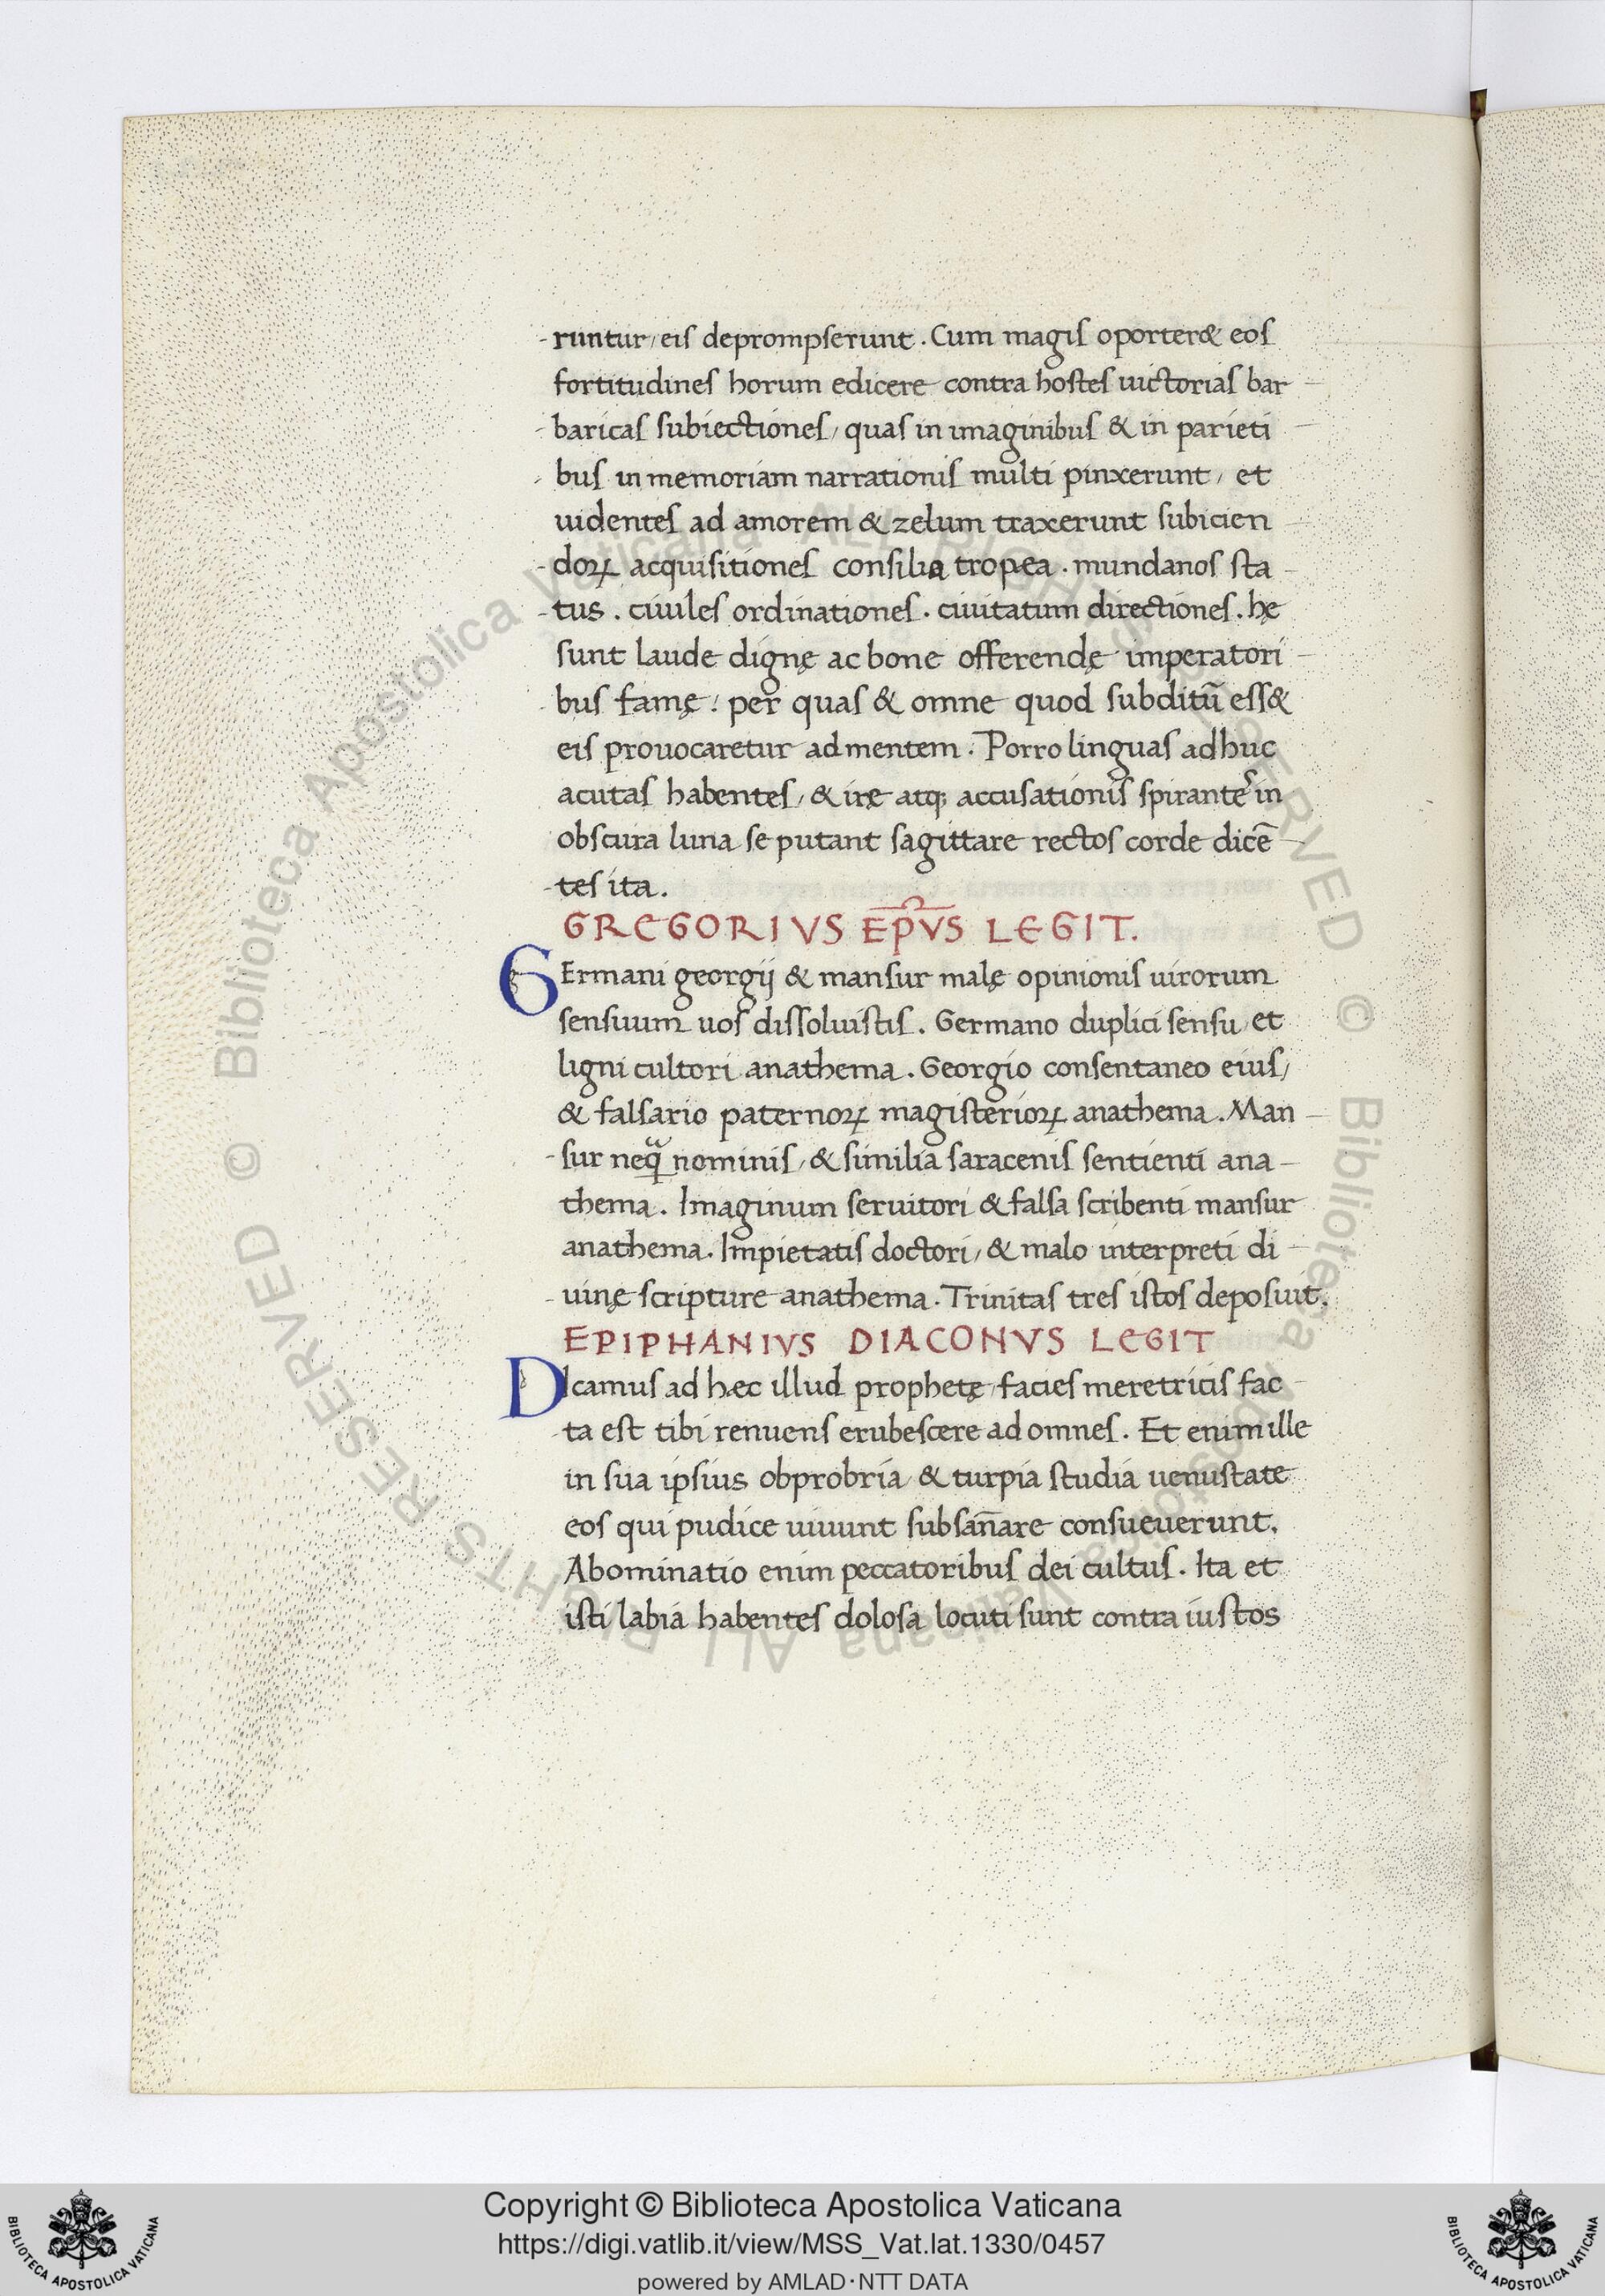 -runtur, eis deprompserunt. Cum magis oporter& eos
fortitudines horum edicere contra hostes uictorias bar-
-baricas subiectiones, quas in imaginibus & in parieti-
-bus in memoriam narrationis multi pinxerunt, et
uidentes ad amorem & zelum traxerunt subicien
-doꝝ acquisitiones consilia tropea. mundanos sta-
-tus. ciuiles ordinationes. ciuitatum directiones. hę
sunt laude dignę ac bone offerendę imperatori-
-bus famę: per quas & omne quod subditū ess&
eis prouocaretur ad mentem. Porro linguas adhuc
acutas habentes, & irę atq; accusationis spirantes in
obscura luna se putant sagittare rectos corde dicē-
-tes ita.
GREGORIVS EP̄VS LEGIT.
GErmani georgij & mansur malę opinionis uirorum
sensuum uos dissoluistis. Germano duplici sensu, et
ligni cultori anathema. Georgio consentaneo eius,
& falsario paternoꝝ magisterioꝝ anathema. Man-
-sur neqͣ nominis, & similia saracenis sentienti ana-
thema. Imaginum seruitori & falsa scribenti mansur
anathema. Impietatis doctori, & malo interpreti di-
-uinę scripture anathema. Trinitas tres istos deposuit.
EPIPHANIVS DIACONVS LEGIT
DIcamus ad hæc illud prophetę, facies meretricis fac-
-ta est tibi renuens erubescere ad omnes. Et enim ille
in sua ipsius obprobria & turpia studia uenustate
eos qui pudice uiuunt subsan̄are consueuerunt.
Abominatio enim peccatoribus dei cultus. Ita et
isti labia habentes dolosa locuti sunt contra iustos
© Biblioteca Apostolica Vaticana ALL RIGHTS RESERVED © Biblioteca Apostolica Vaticana ALL RIGHTS RESERVED
BIBLIOTECA APOSTOLICA VATICANA
Copyright © Biblioteca Apostolica Vaticana
https://digi.vatlib.it/view/MSS_Vat.lat.1330/0457
powered by AMLAD·NTT DATA
BIBLIOTECA APOSTOLICA VATICANA